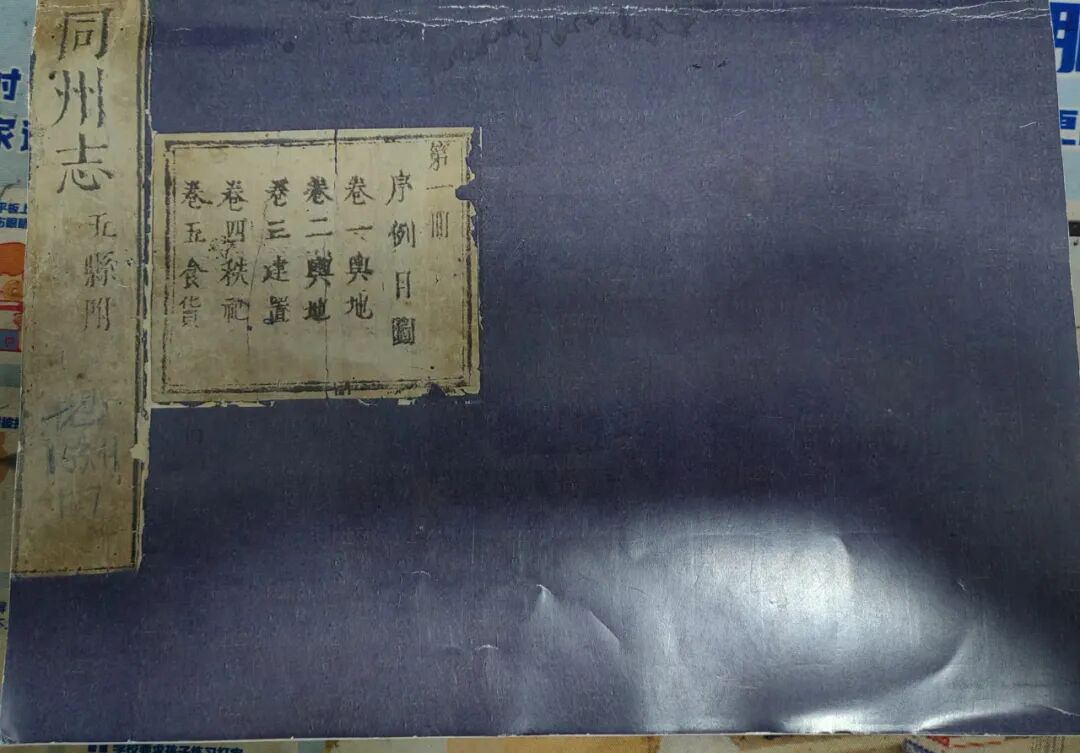 同州志
五縣附
第一冊
序例目圖
卷一輿地
卷二輿地
卷三建置
卷四秩祀
卷五食貨